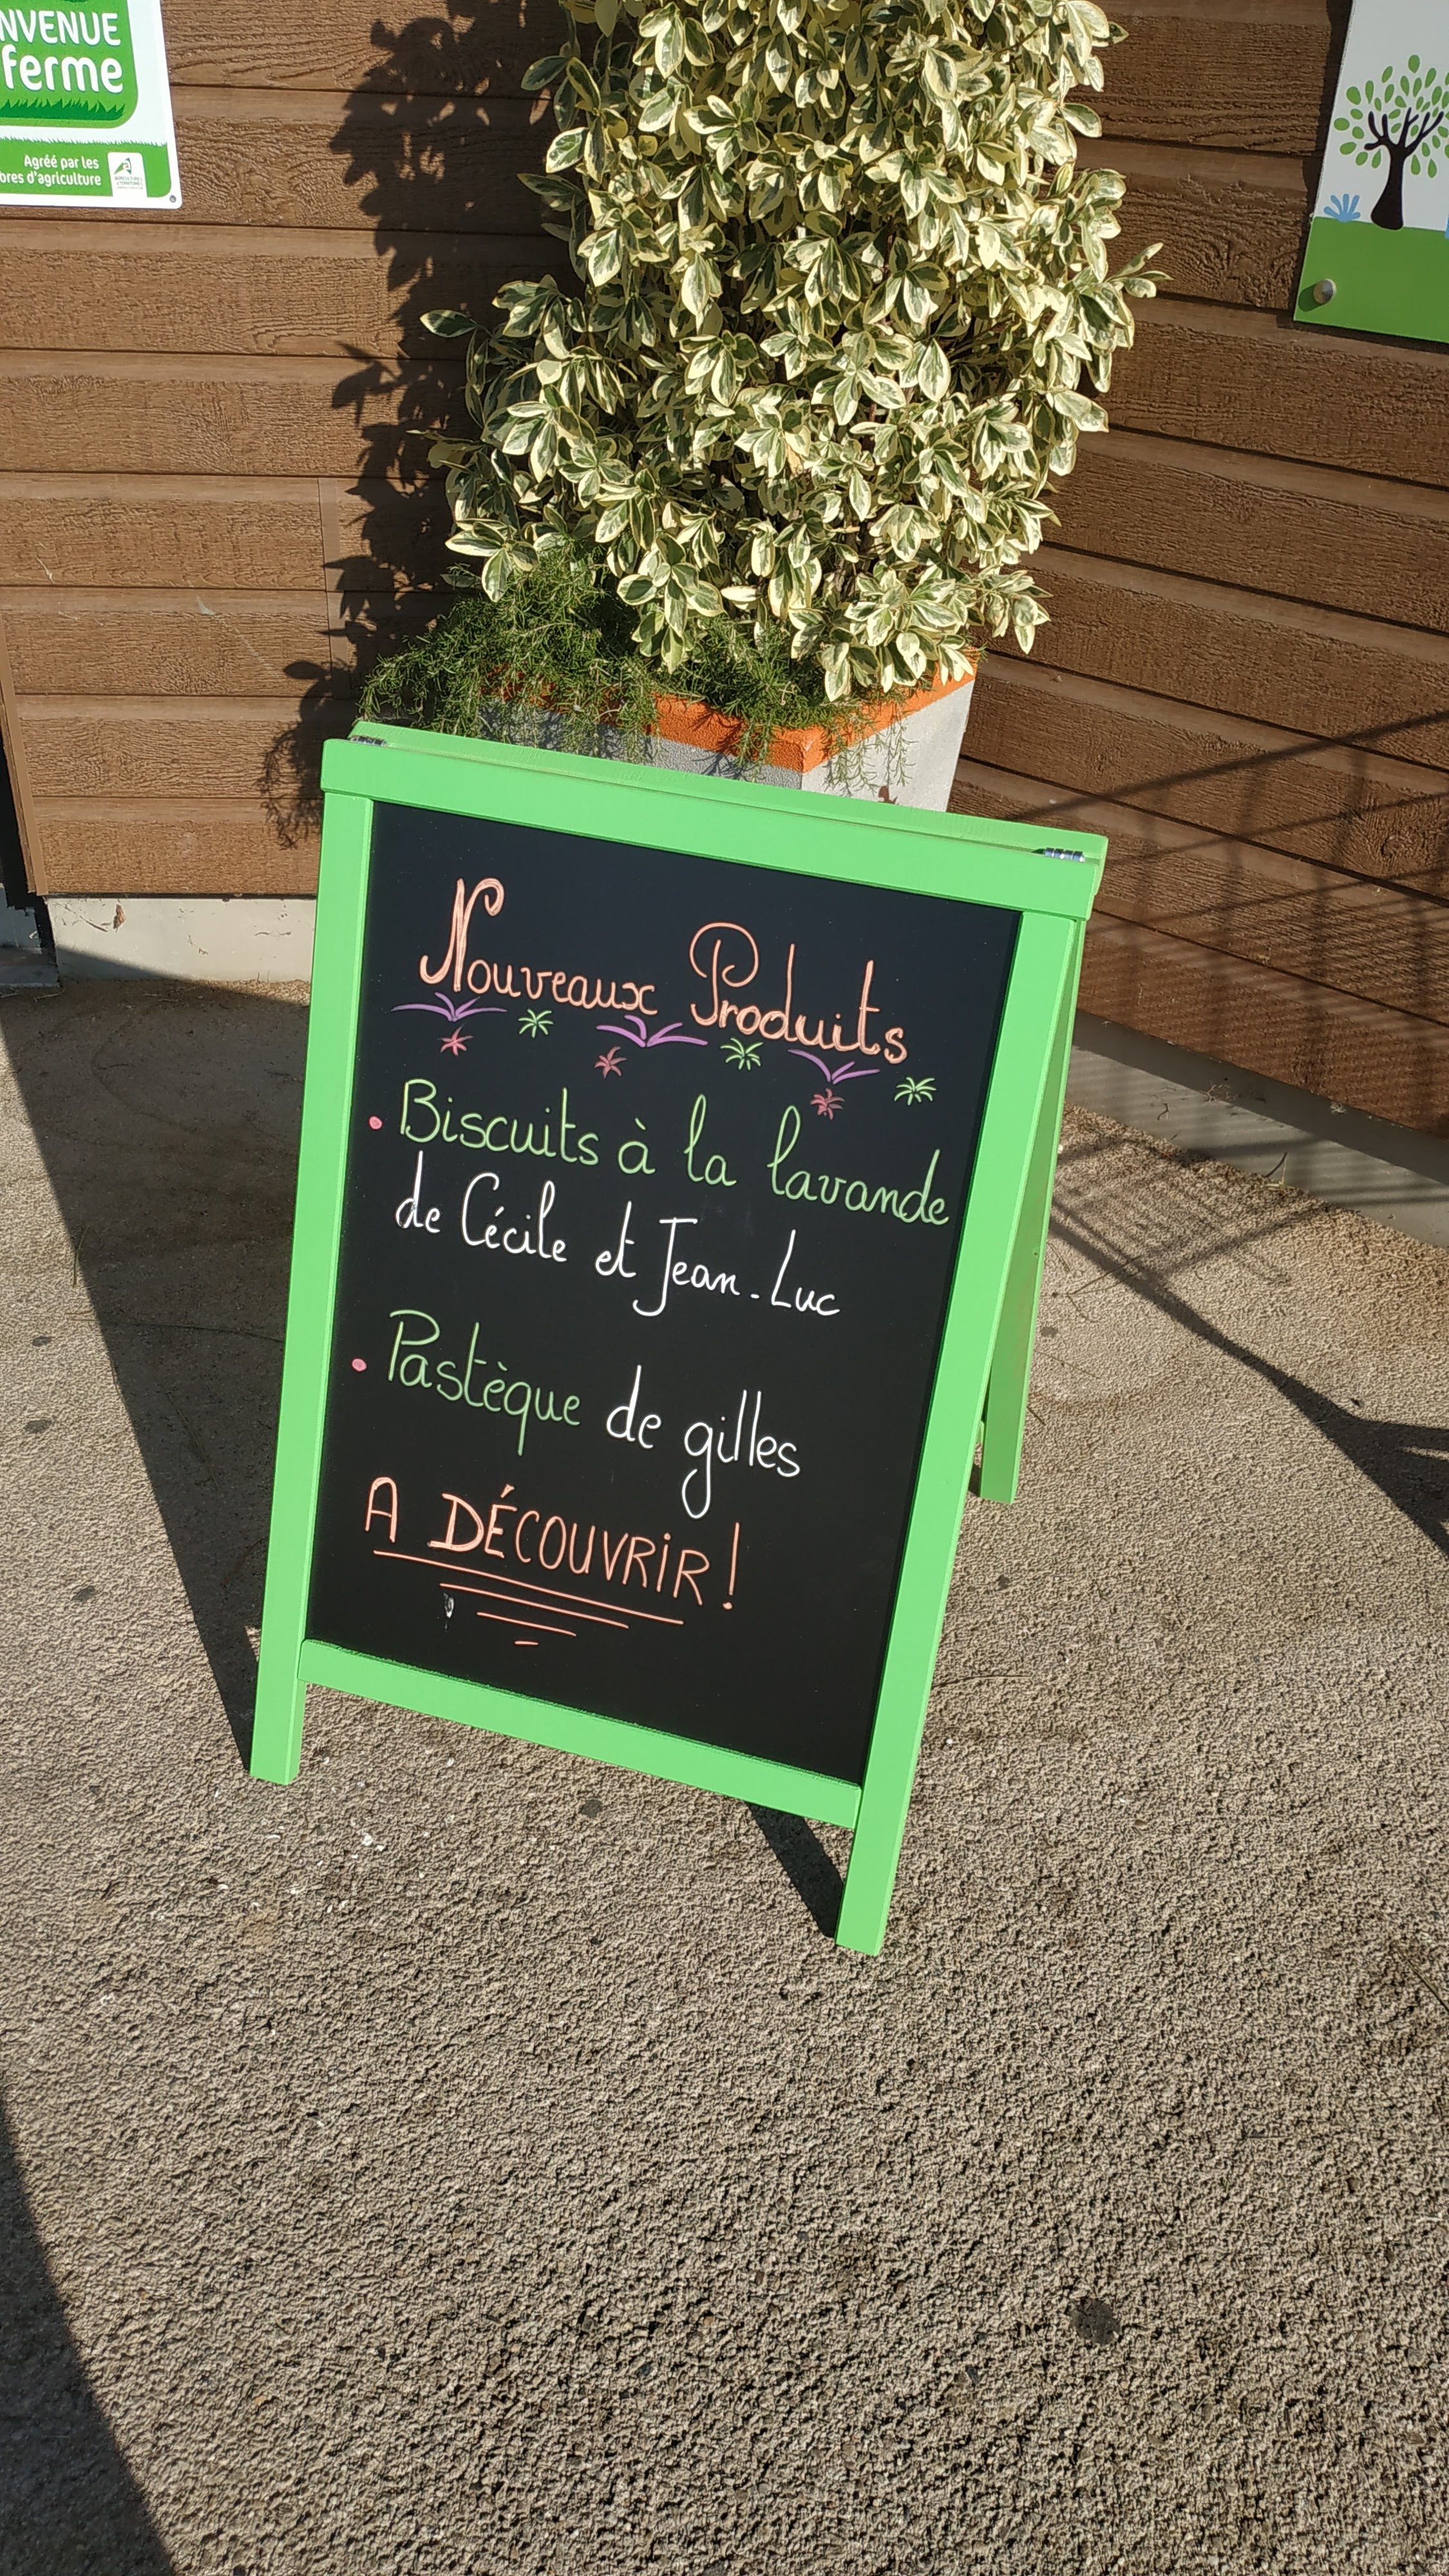 NVENUE
ferme
Agréé par les
bres d'agriculture
Nouveaux Produits
• Biscuits à la lavande
de Cécile et Jean-Luc
• Pastèque de gilles
A DÉCOUVRIR !